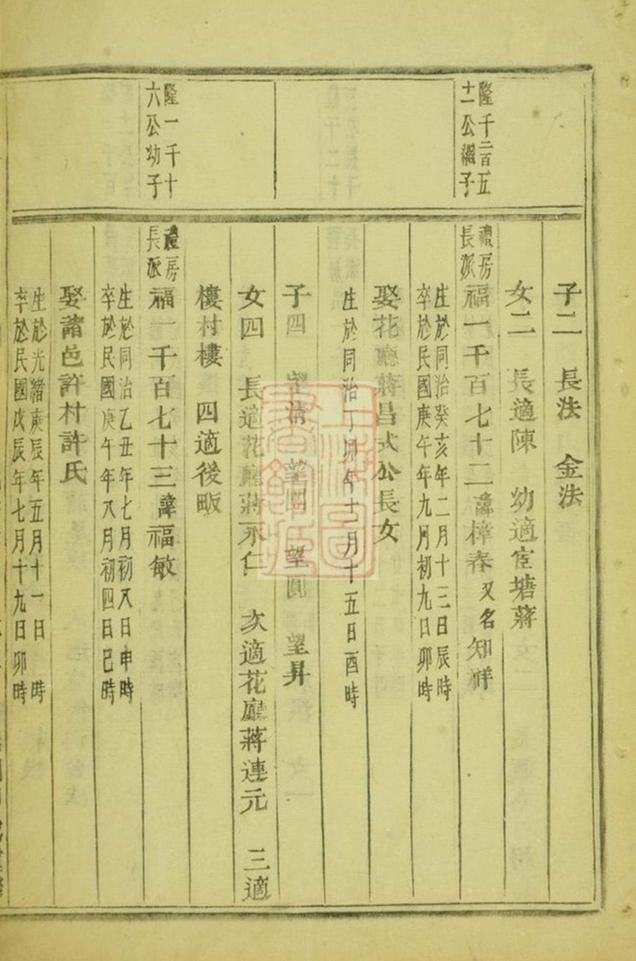 隆千二百五
十一公繼子
隆一千十
六公幼子
子二　長法　金法
女二　長適陳　幼適宦塘蔣
禮房
長派
福一千百七十二 諱樟春 又名 知祥
生於同治癸亥年二月十三日辰時
卒於民國庚午年九月初九日卯時
娶花廳蔣昌 公長女
生於同治丁卯年十二月十五日酉時
子四　望 　望 　望圓　望昇
女四　長適花廳蔣永仁　次適花廳蔣連元　三適
樓村樓　四適後畈
禮房
長派
福一千百七十三 諱福敏
生於同治乙丑年七月初八日申時
卒於民國庚午年八月初四日巳時
娶諸邑許村許氏
生於光緒庚辰年五月十一日　時
卒於民國戊辰年七月十九日卯時